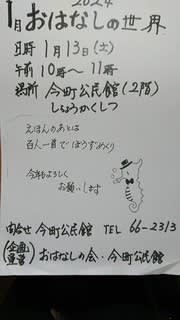 2024
1月 おはなしの世界
日時 1月13日(土)
午前10時〜11時
場所 今町公民館(2階)
しちょうかくしつ
えほんのあとは
百人一首でぼうずめくり
今年もよろしく
お願いします
問合せ 今町公民館 TEL 66-2313
(企画運営) おはなしの会・今町公民館